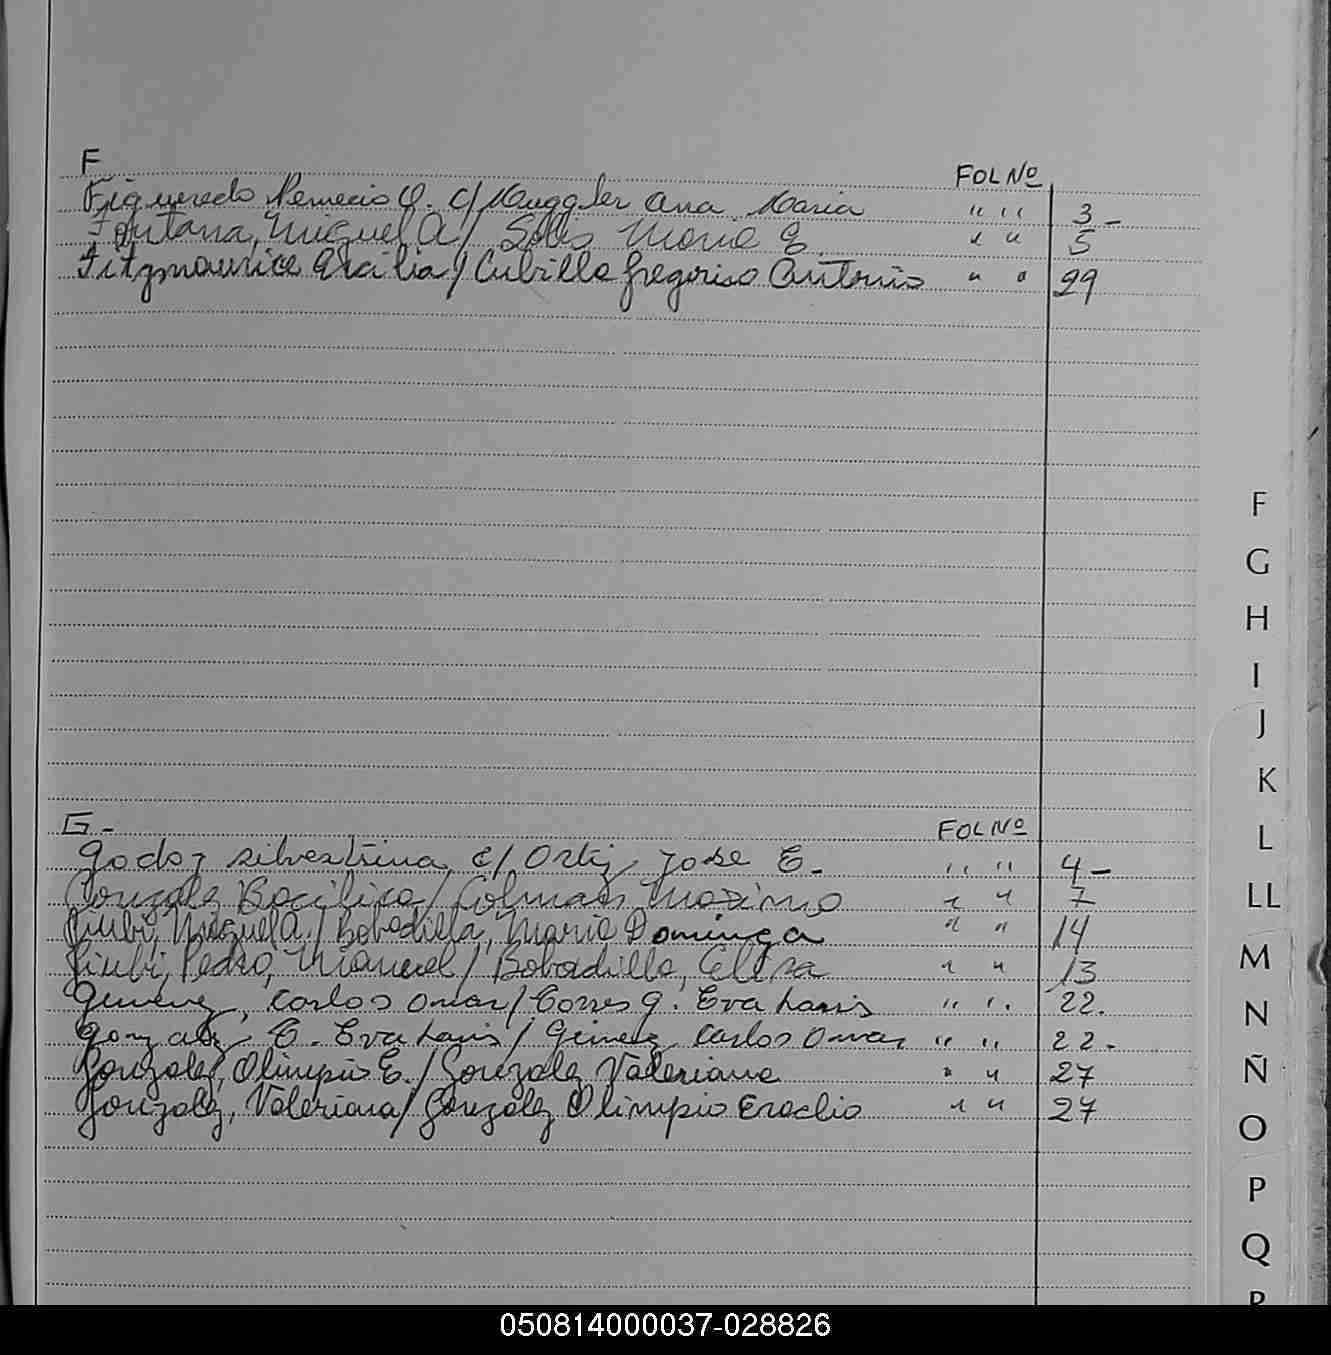 F
FOL Nº
Figueredo Nemecio O. c/ Muggler Ana Maria " " 3 -
Fontana, Miguel A/ Solis Maria E " " 5
Fitzmaurice Ancilia/ Cubilla Gregorio Antonio " " 29
G -
FOL Nº
Godoy silvestrina c/ Ortiz Jose E. " " 4 -
Gonzalez Bacilica/ Colman Maximo " " 7
Miguel A./ Bobadilla, Maria Dominga " " 14
Pedro, Manuel/ Bobadilla, Elisa " " 13
Gimenez, Carlos Omar/ G. Eva Lanis " " 22.
Gonzalez E. Eva Lanis/ Gimenez Carlos Omar " " 22.
Gonzalez, Olimpio E./ Gonzalez Valeriana " " 27
Gonzalez, Valeriana/ Gonzalez Olimpio Eraclio " " 27
F
G
H
I
J
K
L
LL
M
N
Ñ
O
P
Q
R
050814000037-028826